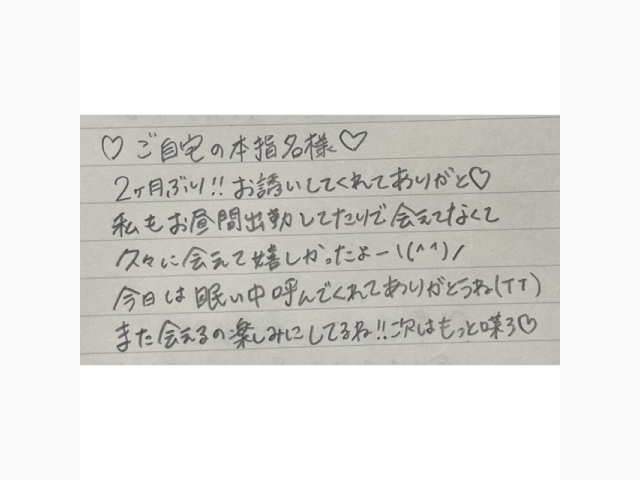 ♡ご自宅の本指名様♡
2ヶ月ぶり!!お誘いしてくれてありがと♡
私もお昼間出勤してたりで会えてなくて
久々に会えて嬉しかったよー\(^^)/
今日は眠い中呼んでくれてありがとうね(TT)
また会えるの楽しみにしてるね!!次はもっと喋ろ♡